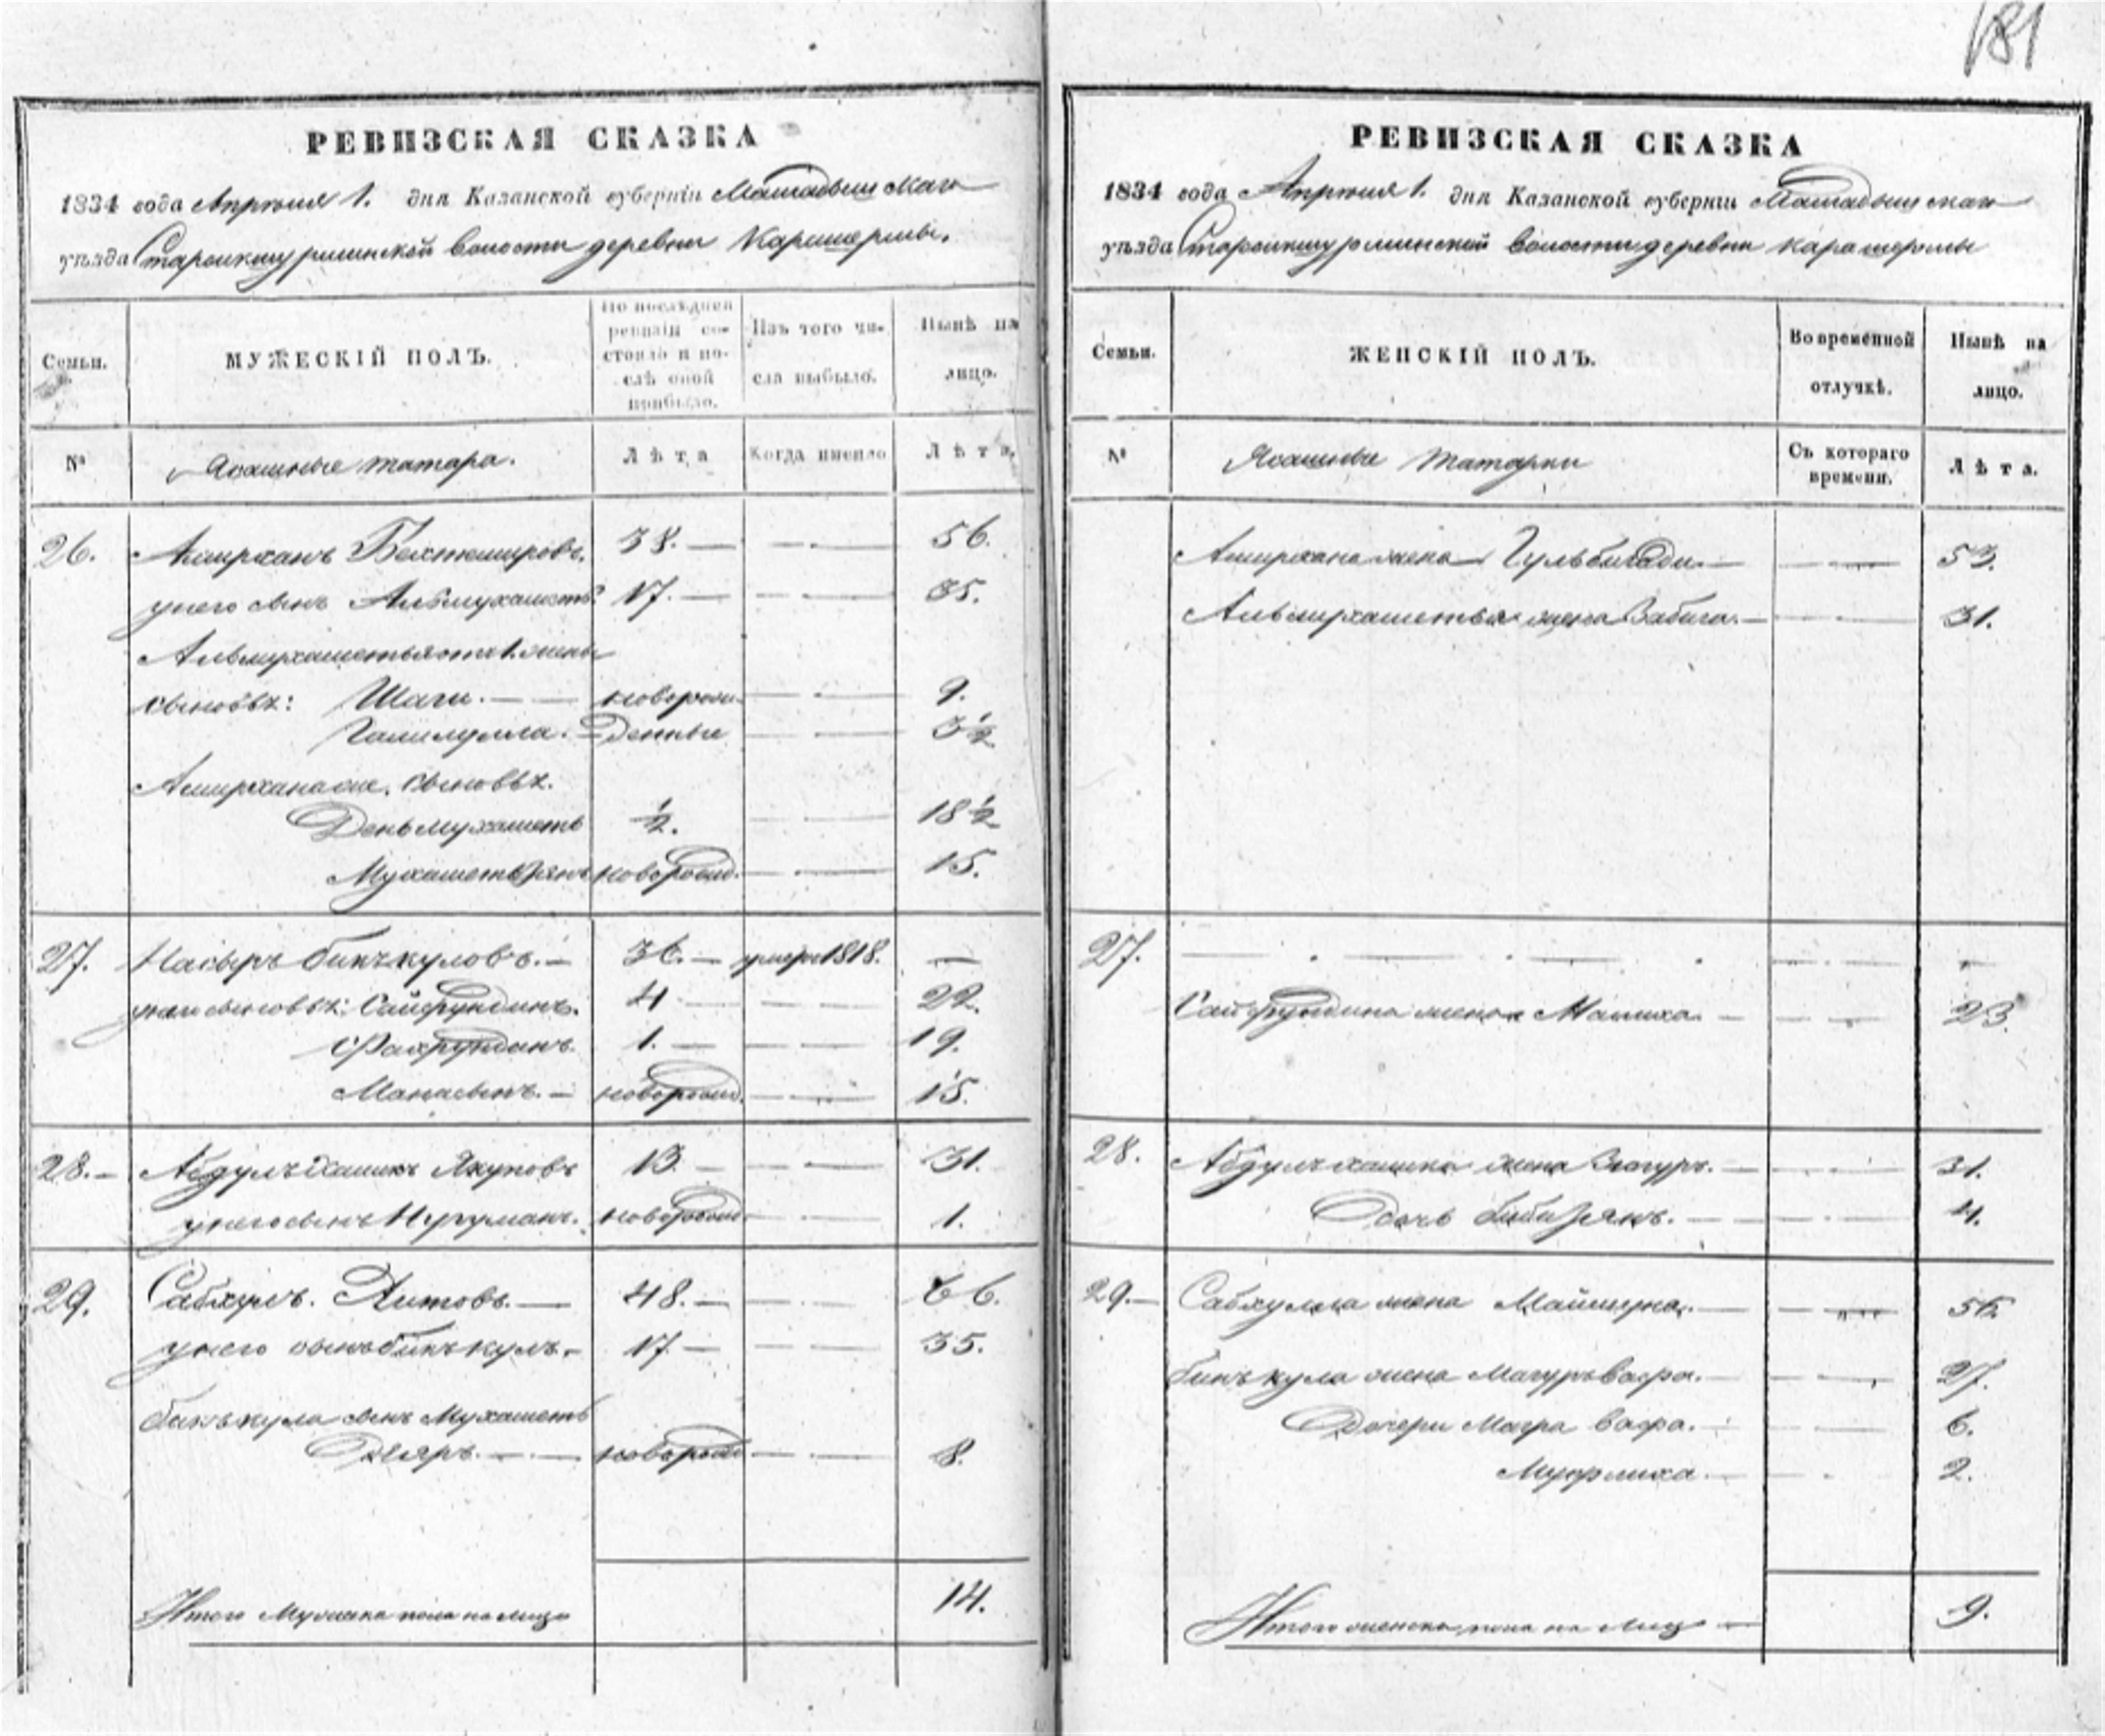 181
РЕВИЗСКАЯ СКАЗКА
1834 года Апреля 1. дня Казанской губерніи Мамадышскаго
уѣзда Староикшурминской волости деревни Карашермы.
Семьи.
МУЖЕСКІЙ ПОЛЪ.
По послѣдней ревизіи состояло и послѣ оной прибыло.
Изъ того числа выбыло.
Нынѣ на лицо.
№
Ясашные татара.
Лѣта
Когда имянно
Лѣта.
26. Амирханъ Бехтемировъ. 38. — 56.
у него сынъ Альмухаметъ 17. — 35.
Альмухаметья от 1. жены
сыновья: Шаги. — новорож- 9.
Галимулла. денные 3½
Амирхана же. сыновья.
Деньмухаметь ½. 18½
Мухаметьзянъ новорожд. 15.
27. Насыръ Бикъкуловъ. — 36. — умеръ 1818. —
у него сыновья: Сайфундинъ. 4 22.
Фахрундинъ. 1. — 19.
Манасыпъ. — новорожд. 15.
28. Абдулъхаликъ Якуповъ 13. — 31.
у него сынъ Нугуманъ. новорожд. 1.
29. Сабкулъ. Аитовъ. — 48. — 66.
у него сынъ Бикъкулъ. 17. — 35.
Бикъкула сынъ Мухаметь
Дияръ. — новорожд. 8.
Итого Мужеска пола на лицо 14.
РЕВИЗСКАЯ СКАЗКА
1834 года Апреля 1. дня Казанской губерніи Мамадышскаго
уѣзда Староикшурминской волости деревни Карашермы
Семьи.
ЖЕНСКІЙ ПОЛЪ.
Во временной отлучкѣ.
Нынѣ на лицо.
№
Ясашные татарки
Съ котораго времени.
Лѣта.
Амирхана жена Гульбизади. — 53.
Альмухаметья жена Забига. — 31.
27.
Сайфундина жена Малиха. — 23.
28. Абдулъхалика жена Зюгуръ. — 31.
Дочь Бибизянъ. — 4.
29. — Сабкула жена Маймуна. — 56.
Бикъкула жена Магурьвафа. — 27.
Дочери Магра вафа. 6.
Муфлиха. 2.
Итого женска пола на лицо — 9.